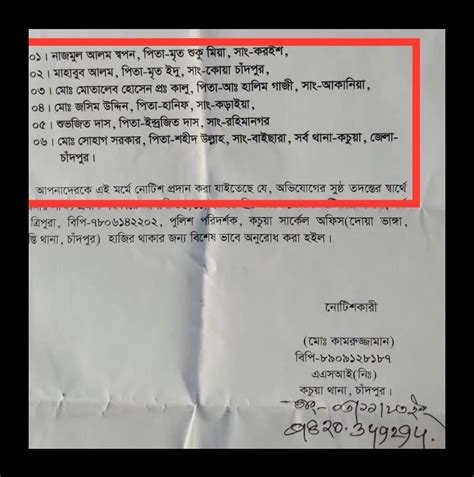 ০১। নাজমুল আলম স্বপন, পিতা-মৃত শুকু মিয়া, সাং-করইশ,
০২। মাহাবুব আলম, পিতা-মৃত ইদু, সাং-কোয়া চাঁদপুর,
০৩। মোঃ মোতালেব হোসেন প্রঃ কালু, পিতা-আঃ হালিম গাজী, সাং-আকানিয়া,
০৪। মোঃ জসিম উদ্দিন, পিতা-হানিফ, সাং-কড়াইয়া,
০৫। শুভজিত দাস, পিতা-ইন্দ্রজিত দাস, সাং-রহিমানগর
০৬। মোঃ সোহাগ সরকার, পিতা-শহীদ উল্লাহ, সাং-বাইছারা, সর্ব থানা-কচুয়া, জেলা-
চাঁদপুর।
আপনাদেরকে এই মর্মে নোটিশ প্রদান করা যাইতেছে যে, অভিযোগের সুষ্ঠ তদন্তের স্বার্থে
ত্রিপুরা, বিপি-৭৮০৬১৪২২০২, পুলিশ পরিদর্শক, কচুয়া সার্কেল অফিস(দোয়া ভাঙ্গা,
থানা, চাঁদপুর) হাজির থাকার জন্য বিশেষ ভাবে অনুরোধ করা হইল।
নোটিশকারী
(মোঃ কামরুজ্জামান)
বিপি-৮৯০৯১২৮১৮৭
এএসআই(নিঃ)
কচুয়া থানা, চাঁদপুর।